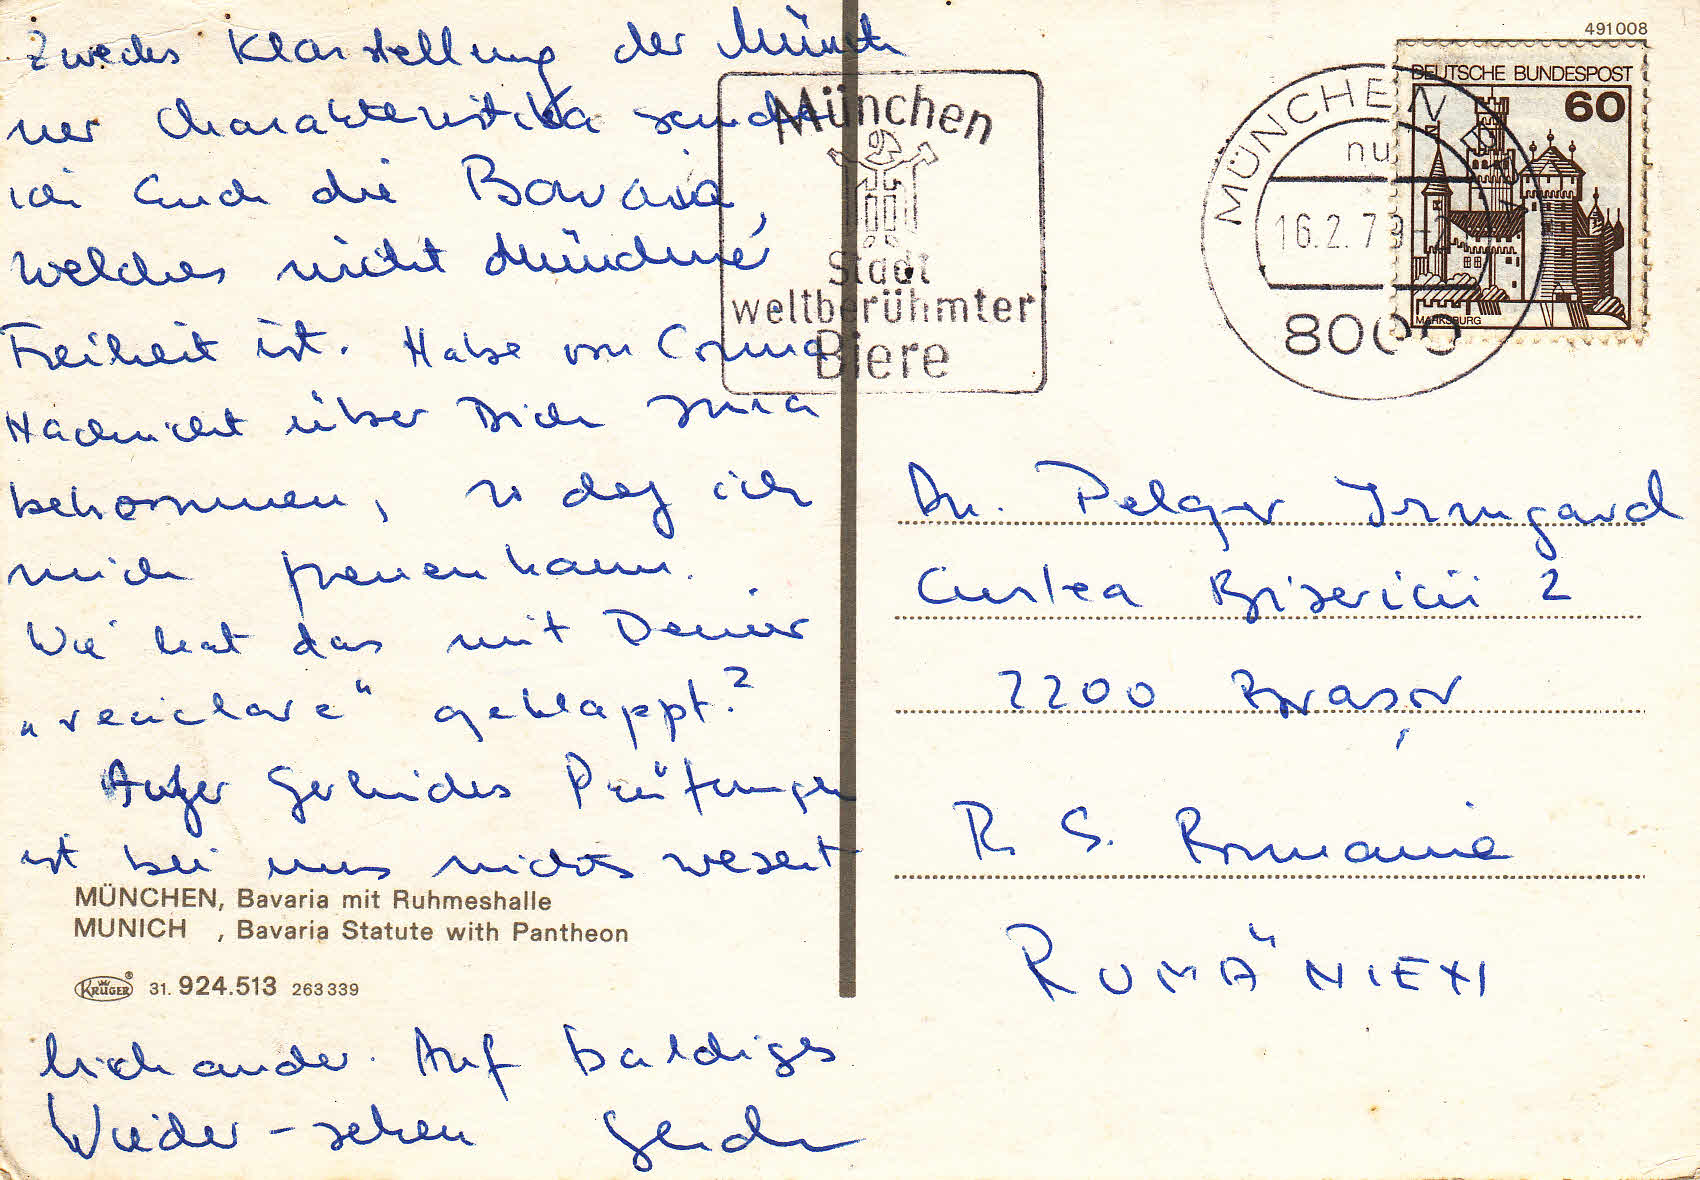 Zwecks Klarstellung der Münch
ner Charakteristika sende
ich Euch die Bavaria,
welches nicht Münchner
Freiheit ist. Habe von Corina
Nachricht über Dich
bekommen, so daß ich
mich freuen kann.
Wie hat das mit Deiner
„reciclare“ geklappt?
Außer Gerlindes Prüfungen
ist bei uns nichts wesent
MÜNCHEN, Bavaria mit Ruhmeshalle
MUNICH , Bavaria Statute with Pantheon
KRÜGER 31. 924.513 263339
lich ander. Auf baldiges
Wieder-sehen
München
Stadt
weltberühmter
Biere
491008
DEUTSCHE BUNDESPOST
60
MARKSBURG
MÜNCHEN
16.2.79
8000
Dr. Pelger Irmgard
Curtea Bisericii 2
2200 Brașov
R. S. Romania
RUMÄNIEN